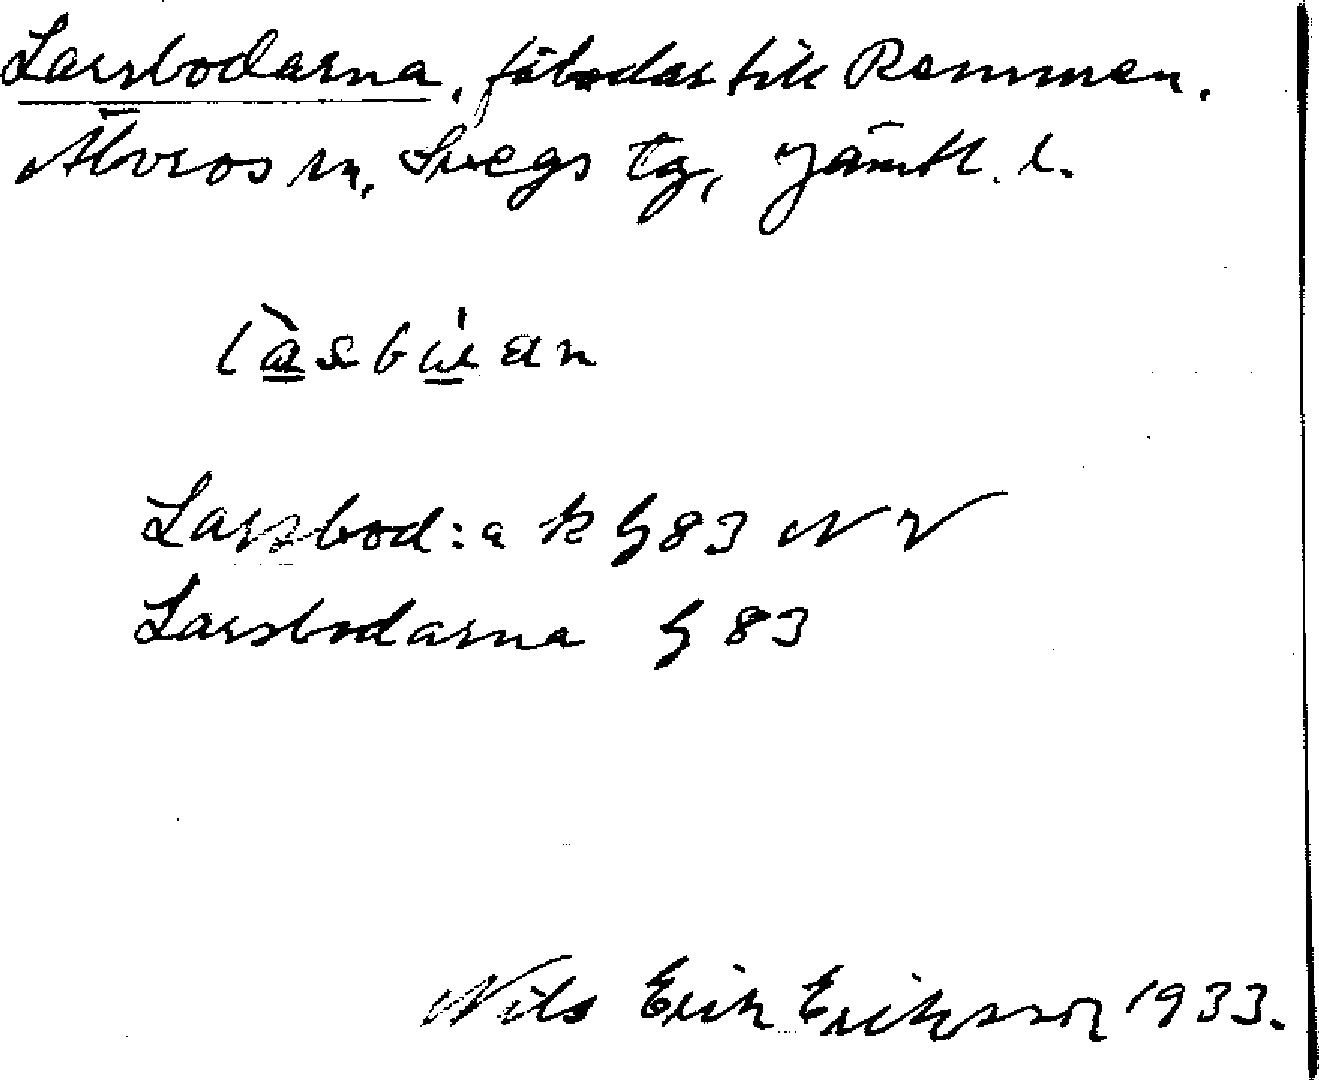 Larsbodarna, fäbodar till Remmen.
Älvros sn, Svegs tg, Jämtl. l.
Larsbod:a k G 83 NV
Larsbodarna G 83
Nils Erik Eriksson 1933.